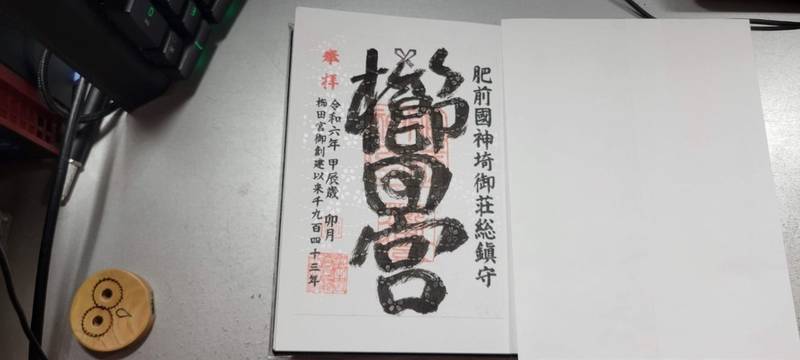 肥前國神埼御荘総鎮守
櫛田宮
奉拝
令和六年 甲辰歳 卯月
櫛田宮御創建以来千九百四十三年